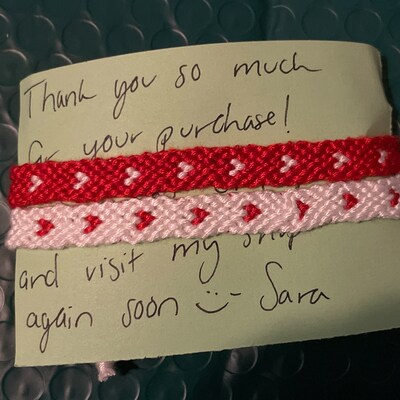 Thank you so much
for your purchase!
and visit my shop
again soon :) - Sara